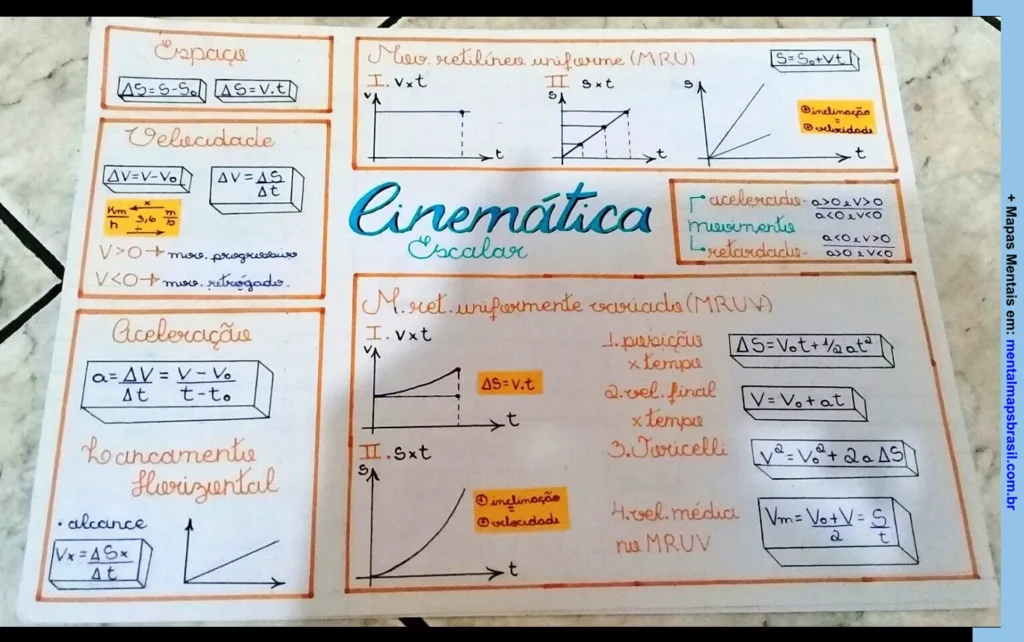 Espaço
ΔS=S-S₀
ΔS=V.t
Velocidade
ΔV=V-V₀
ΔV=ΔS/Δt
Km/h ← x 3,6 ÷ → m/s
V>0→mov. progressivo
V<0→mov. retrógado.
Aceleração
a=ΔV/Δt = V-V₀/t-t₀
Lancamento
Horizontal
• alcance
Vx=ΔSx/Δt
Mov. retilíneo uniforme (MRU)
S=S₀+Vt
I. Vxt
V
t
II Sxt
S
t
S
t
⊕inclinação
=
⊕velocidade
Cinemática
Escalar
acelerado- a>0 e V>0
a<0 e V<0
movimento
retardado- a<0 e V>0
a>0 e V<0
M. ret. uniformente variado (MRUV)
I. Vxt
V
t
ΔS=V.t
II. Sxt
S
t
⊕inclinação
=
⊕velocidade
1.posição
x tempo
ΔS=V₀t+½at²
2.vel. final
x tempo
V=V₀+at
3.Toricelli
V²=V₀²+2aΔS
4.vel. média
no MRUV
Vm=V₀+V/2=S/t
+ Mapas Mentais em: mentalmapsbrasil.com.br